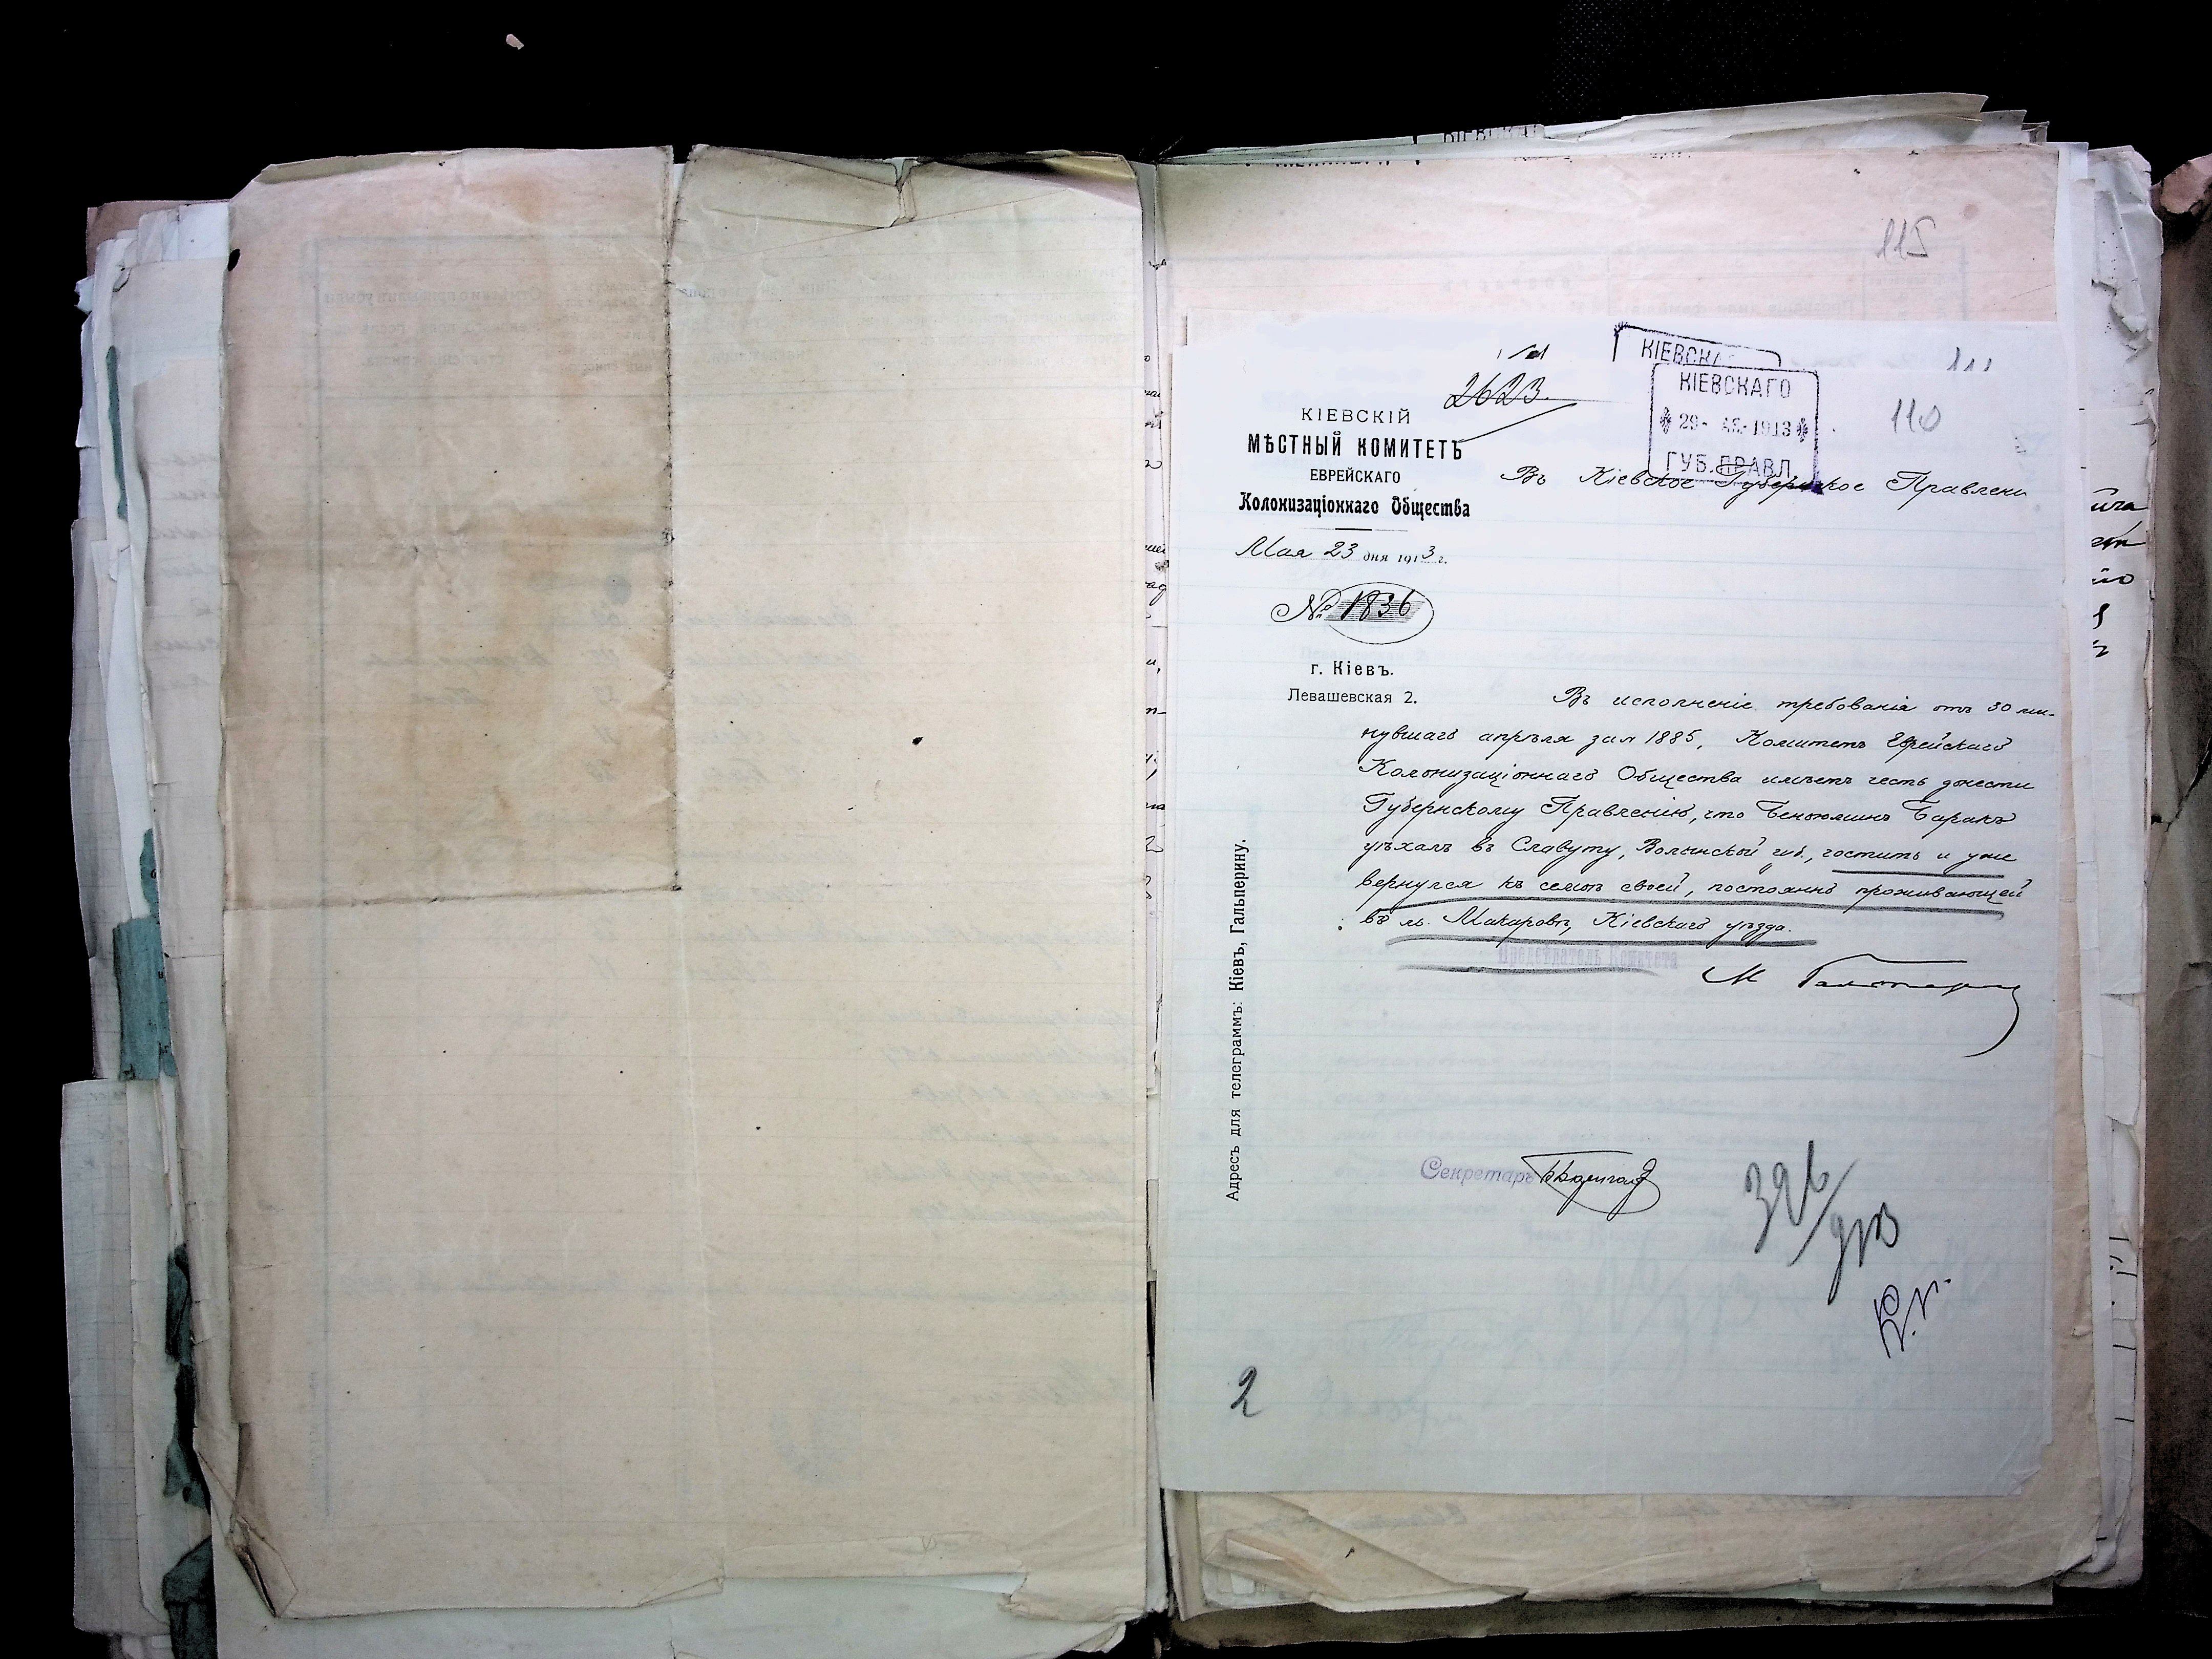 115
111
110
2623.
КІЕВСКА
КІЕВСКАГО
29- 1913
ГУБ. ПРАВЛ.
КІЕВСКІЙ
МѢСТНЫЙ КОМИТЕТЪ
ЕВРЕЙСКАГО
Колонизаціоннаго Общества
Мая 23 дня 1913 г.
№ 1836
г. Кіевъ.
Левашевская 2.
Въ Кіевское Губернское Правлени
Въ исполненіе требованія отъ 30 ми-
нувшаго апрѣля за № 1885, Комитетъ Еврейскаго
Колонизаціоннаго Общества имѣетъ честь донести
Губернскому Правленію, что Беньюминъ Баракъ
уѣхалъ въ Славуту, Волынской губ., гостить и уже
вернулся къ семьѣ своей, постоянно проживающей
въ м. Макаровѣ, Кіевскаго уѣзда.
Предсѣдатель Комитета
М Гальперин
Секретарь
Адресъ для телеграммъ: Кіевъ, Гальперину.
396/913
2